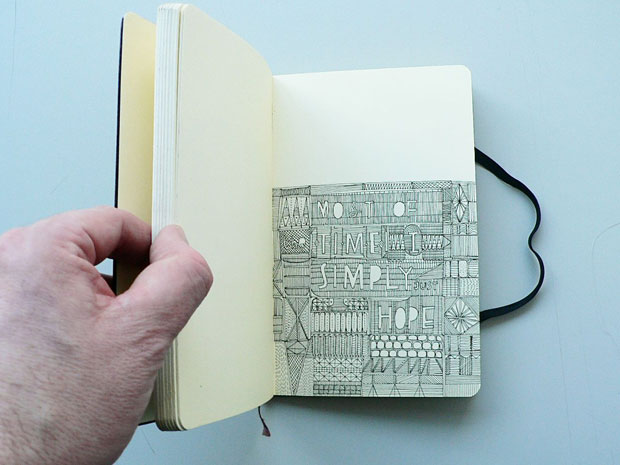 MOST OF
TIME I
SIMPLY JUST
HOPE